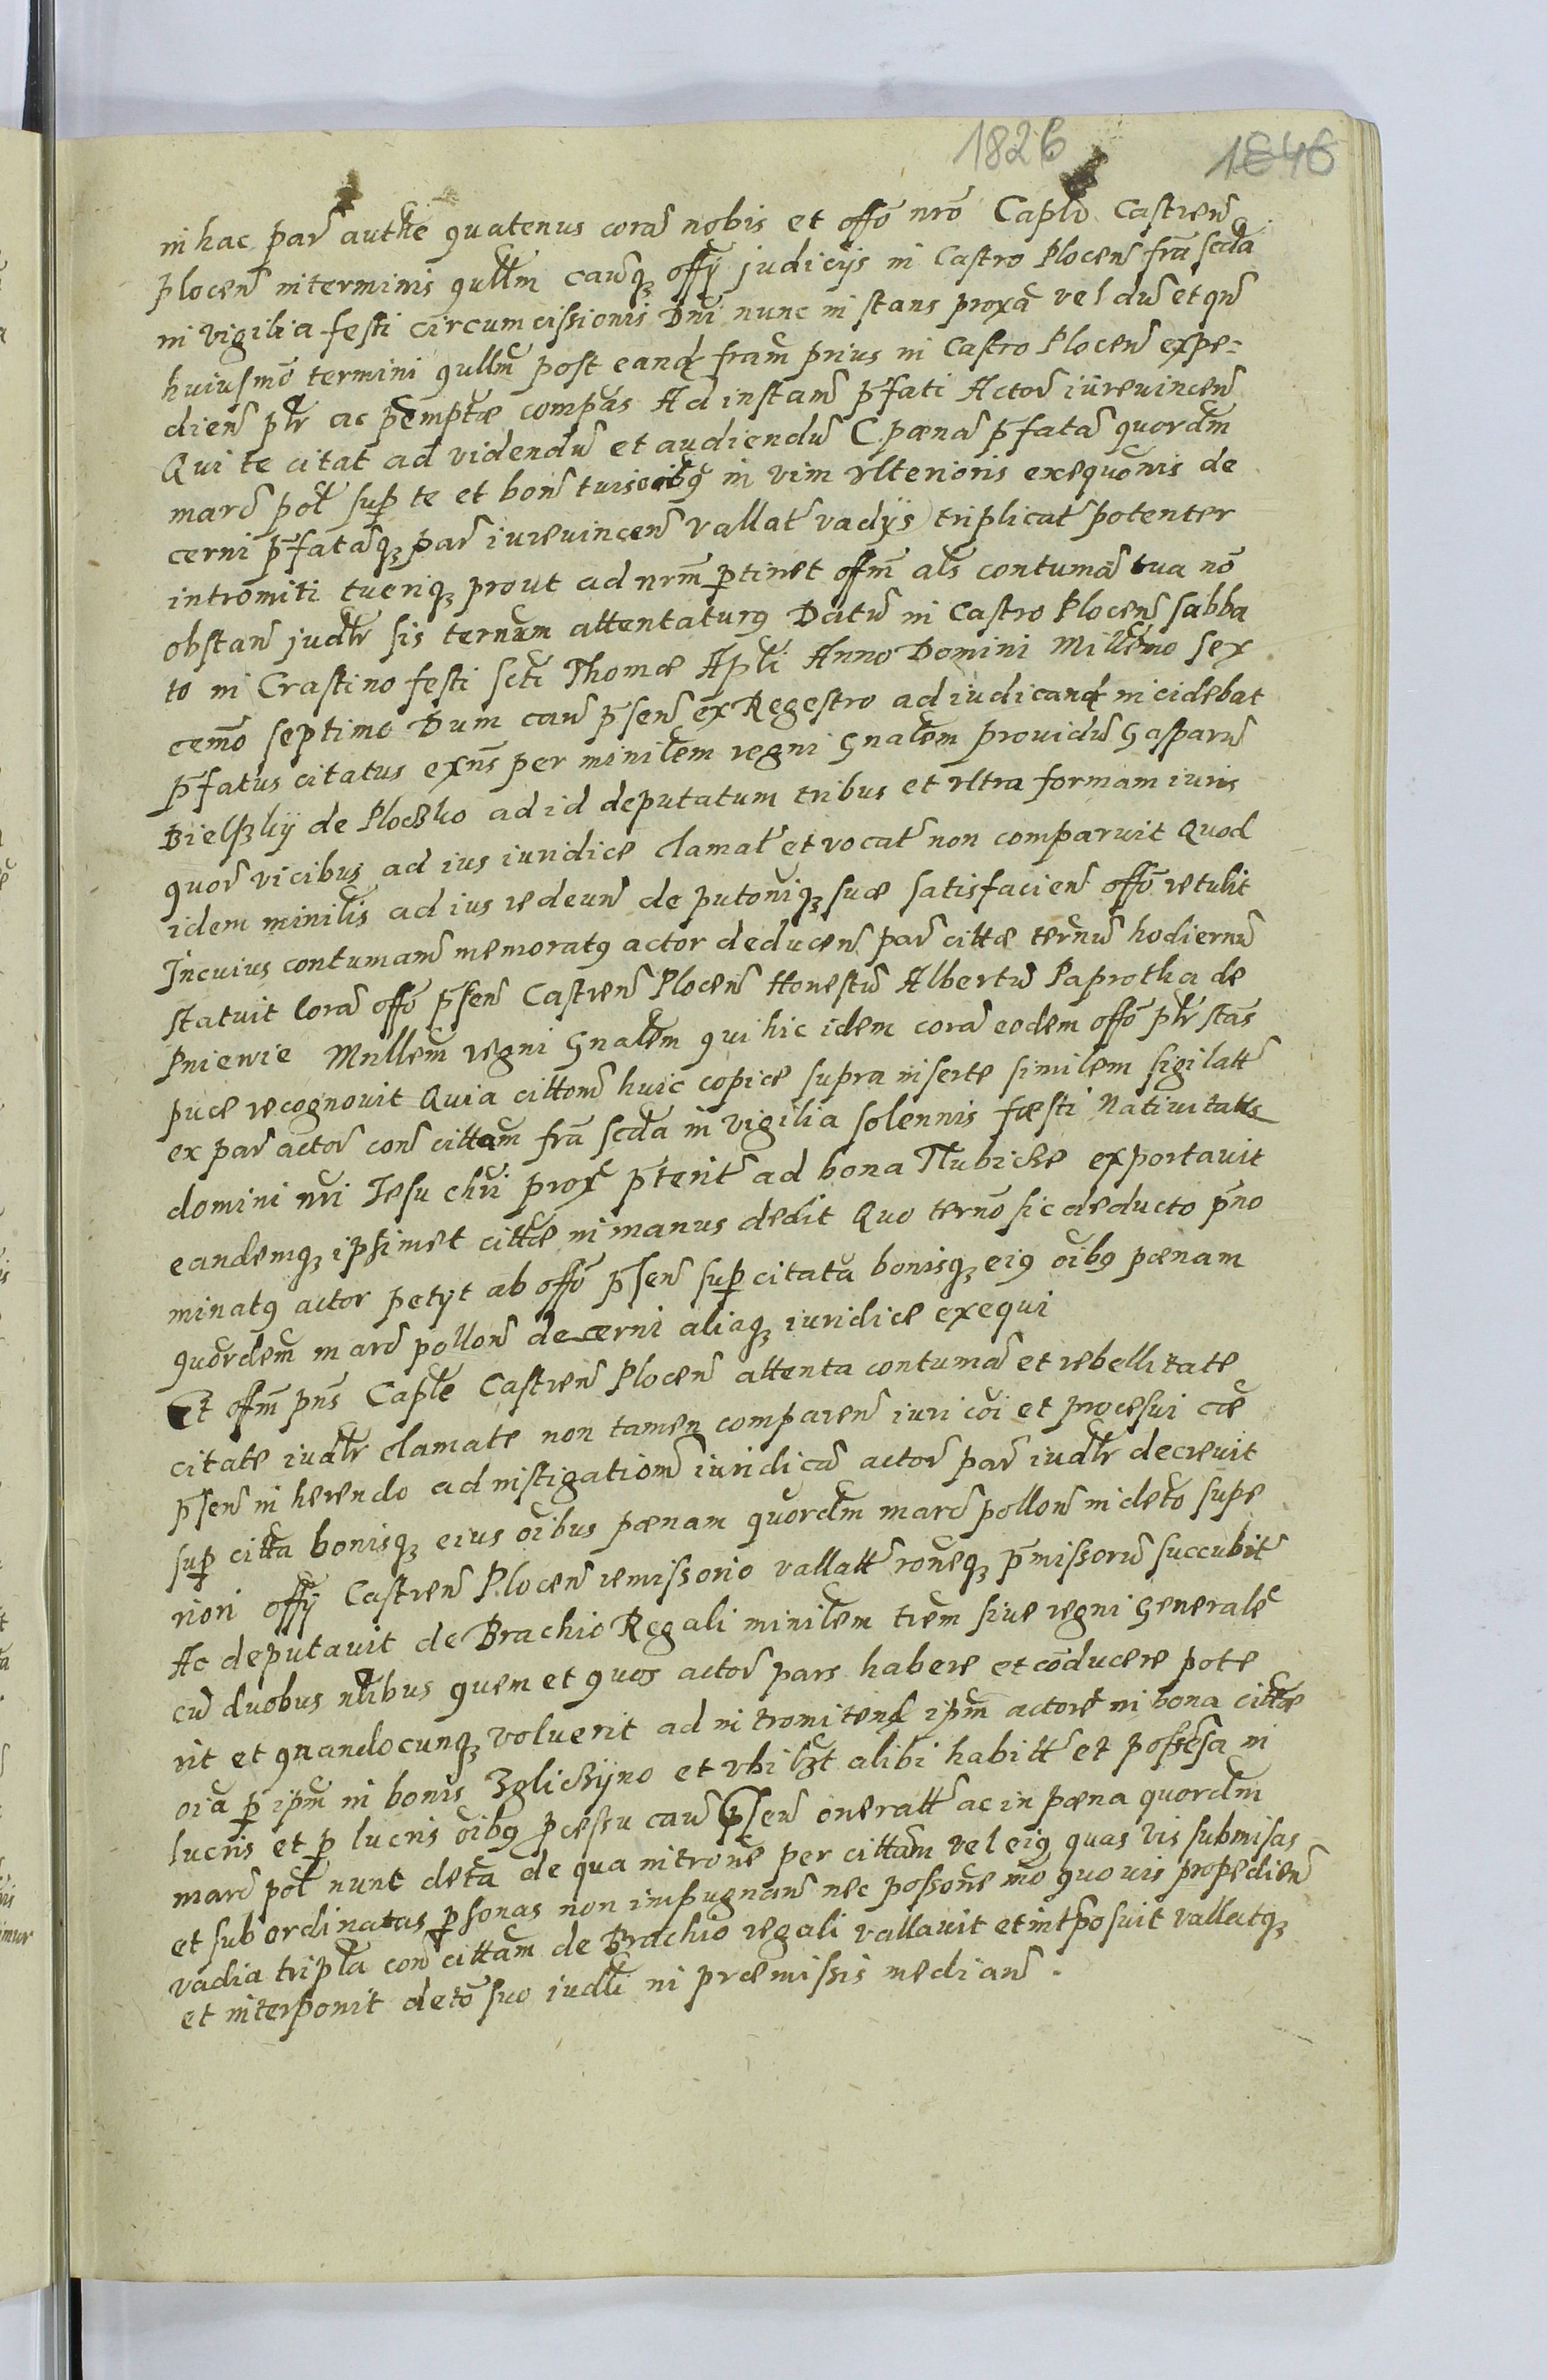 1826 1846
in hac par̃ authte quatenus corã nobis et offõ nrõ Caplõ Castren̄
plocen̄ in terminis qullm̃ cauq̃ȝ offÿ judicijs in Castro Plocen̄ frã scdã
in vigilia festi circumcissionis Dni nunc instans proxã vel dũ et qñ
huiusmõ termini qullm̃ post eand̃ frãm prius in Castro Plocen̄ expe=
dien̄ pltr ac pemptæ compãs Ad instan̄ pfati Actor̃ iurevincen̄
Qui te citat ad videndũ et audiendũ C. pænã pfatã quordm̃
marc̃ pol̃ sup te et bon̄ tuis oibq in vim ulterioris exequõnis de
cerni pfatãqȝ par̃ iurevincen̄ vallat̃ vadijs triplicat̃ potenter
intromiti tueriqȝ prout ad nrm̃ ptinet offm̃ als contumã tua nõ
obstan̄ judlr sis ternum attentaturq Datũ in Castro Plocen̄ sabba
to in Crastino festi scti Thomæ Apli Anno Domini Millemo sex
cemõ septimo Dum cau p̃sen̄ ex Regestro ad iudicand̃ incidebat
pfatus citatus exns per minilem regni Gnalem providũ Gasparũ
Bielszkij de Ploczko ad id deputatum tribus et ultra formam iuris
quor̃ vicibus ad ius iuridice clamat̃ et vocat̃ non comparuit Quod
idem minilis ad ius redeun̄ deputoniqȝ suæ satisfacien̄ offõ retulit
In cuius contumam̃ memoratq actor deducen̄ par̃ cittæ ternũ hodiernũ
statuit Corã offõ p̃sen̄ Castren̄ Plocen̄ Honestũ Albertũ Paprotka de
Pniewie Mnllem̃ regni Gnalem qui hic idem corã eodem offõ pltr stãs
puce recognovit Quia cittom̃ huic copiæ supra inserte similem sigilatt̃
ex par̃ actor̃ con̄ cittam frã scdã in vigilia solennis fæsti Nativitatis
domini nri Iesu chri prox̃ pterit̃ ad bona Tlubicze exportavit
eandemqȝ ipsimet cittæ in manus dedit Quo ternõ sic deducto pño
minatq actor petijt ab offõ p̃sen̄ sup citatã bonisqȝ eiq oibq pænam
quordem̃ marc̃ pollon̄ decerni aliaqȝ iuridice exequi
Et offm̃ pns Caple Castren̄ Plocen̄ attenta contumã et rebellitate
citate iudlr clamate non tamen comparen̄ iuri cõi et procesui cæ
p̃sen̄ in herendo ad instigationẽ iuridicã actor̃ par̃ iudlr decrevit
sup cittã bonisqȝ eius oibus pænam quordm̃ marc̃ pollon̄ in detõ supe
riori offÿ Castren̄ Plocen̄ remissorio vallatt̃ roneqȝ p̃missorũ succubit̃
Ac deputavit de Brachio Regali minilem trem̃ sive regni Generalẽ
cũ duobus nlibus quem et quos actor̃ pars habere et cõducere pote
rit et quandocunqȝ voluerit ad intromitend̃ ipm̃ actorẽ in bona cittæ
oiã p ipm̃ in bonis Zgliczijno et ubi lzt alibi habitt̃ et possesa in
lucris et p lucris oibq pcessu cau p̃sen̄ oneratt̃ ac in pæna quordm̃
marc̃ pol̃ nunt detã de qua intronẽ per cittam vel eiq quas vis submisas
et subordinatas psonas non impugnan̄ nec possone mõ quo vis propedien̄
vadia tripla con̄ cittam de Brachio regali vallavit et intposuit vallatqȝ
et interponit detõ suo iudli in præmissis median̄.